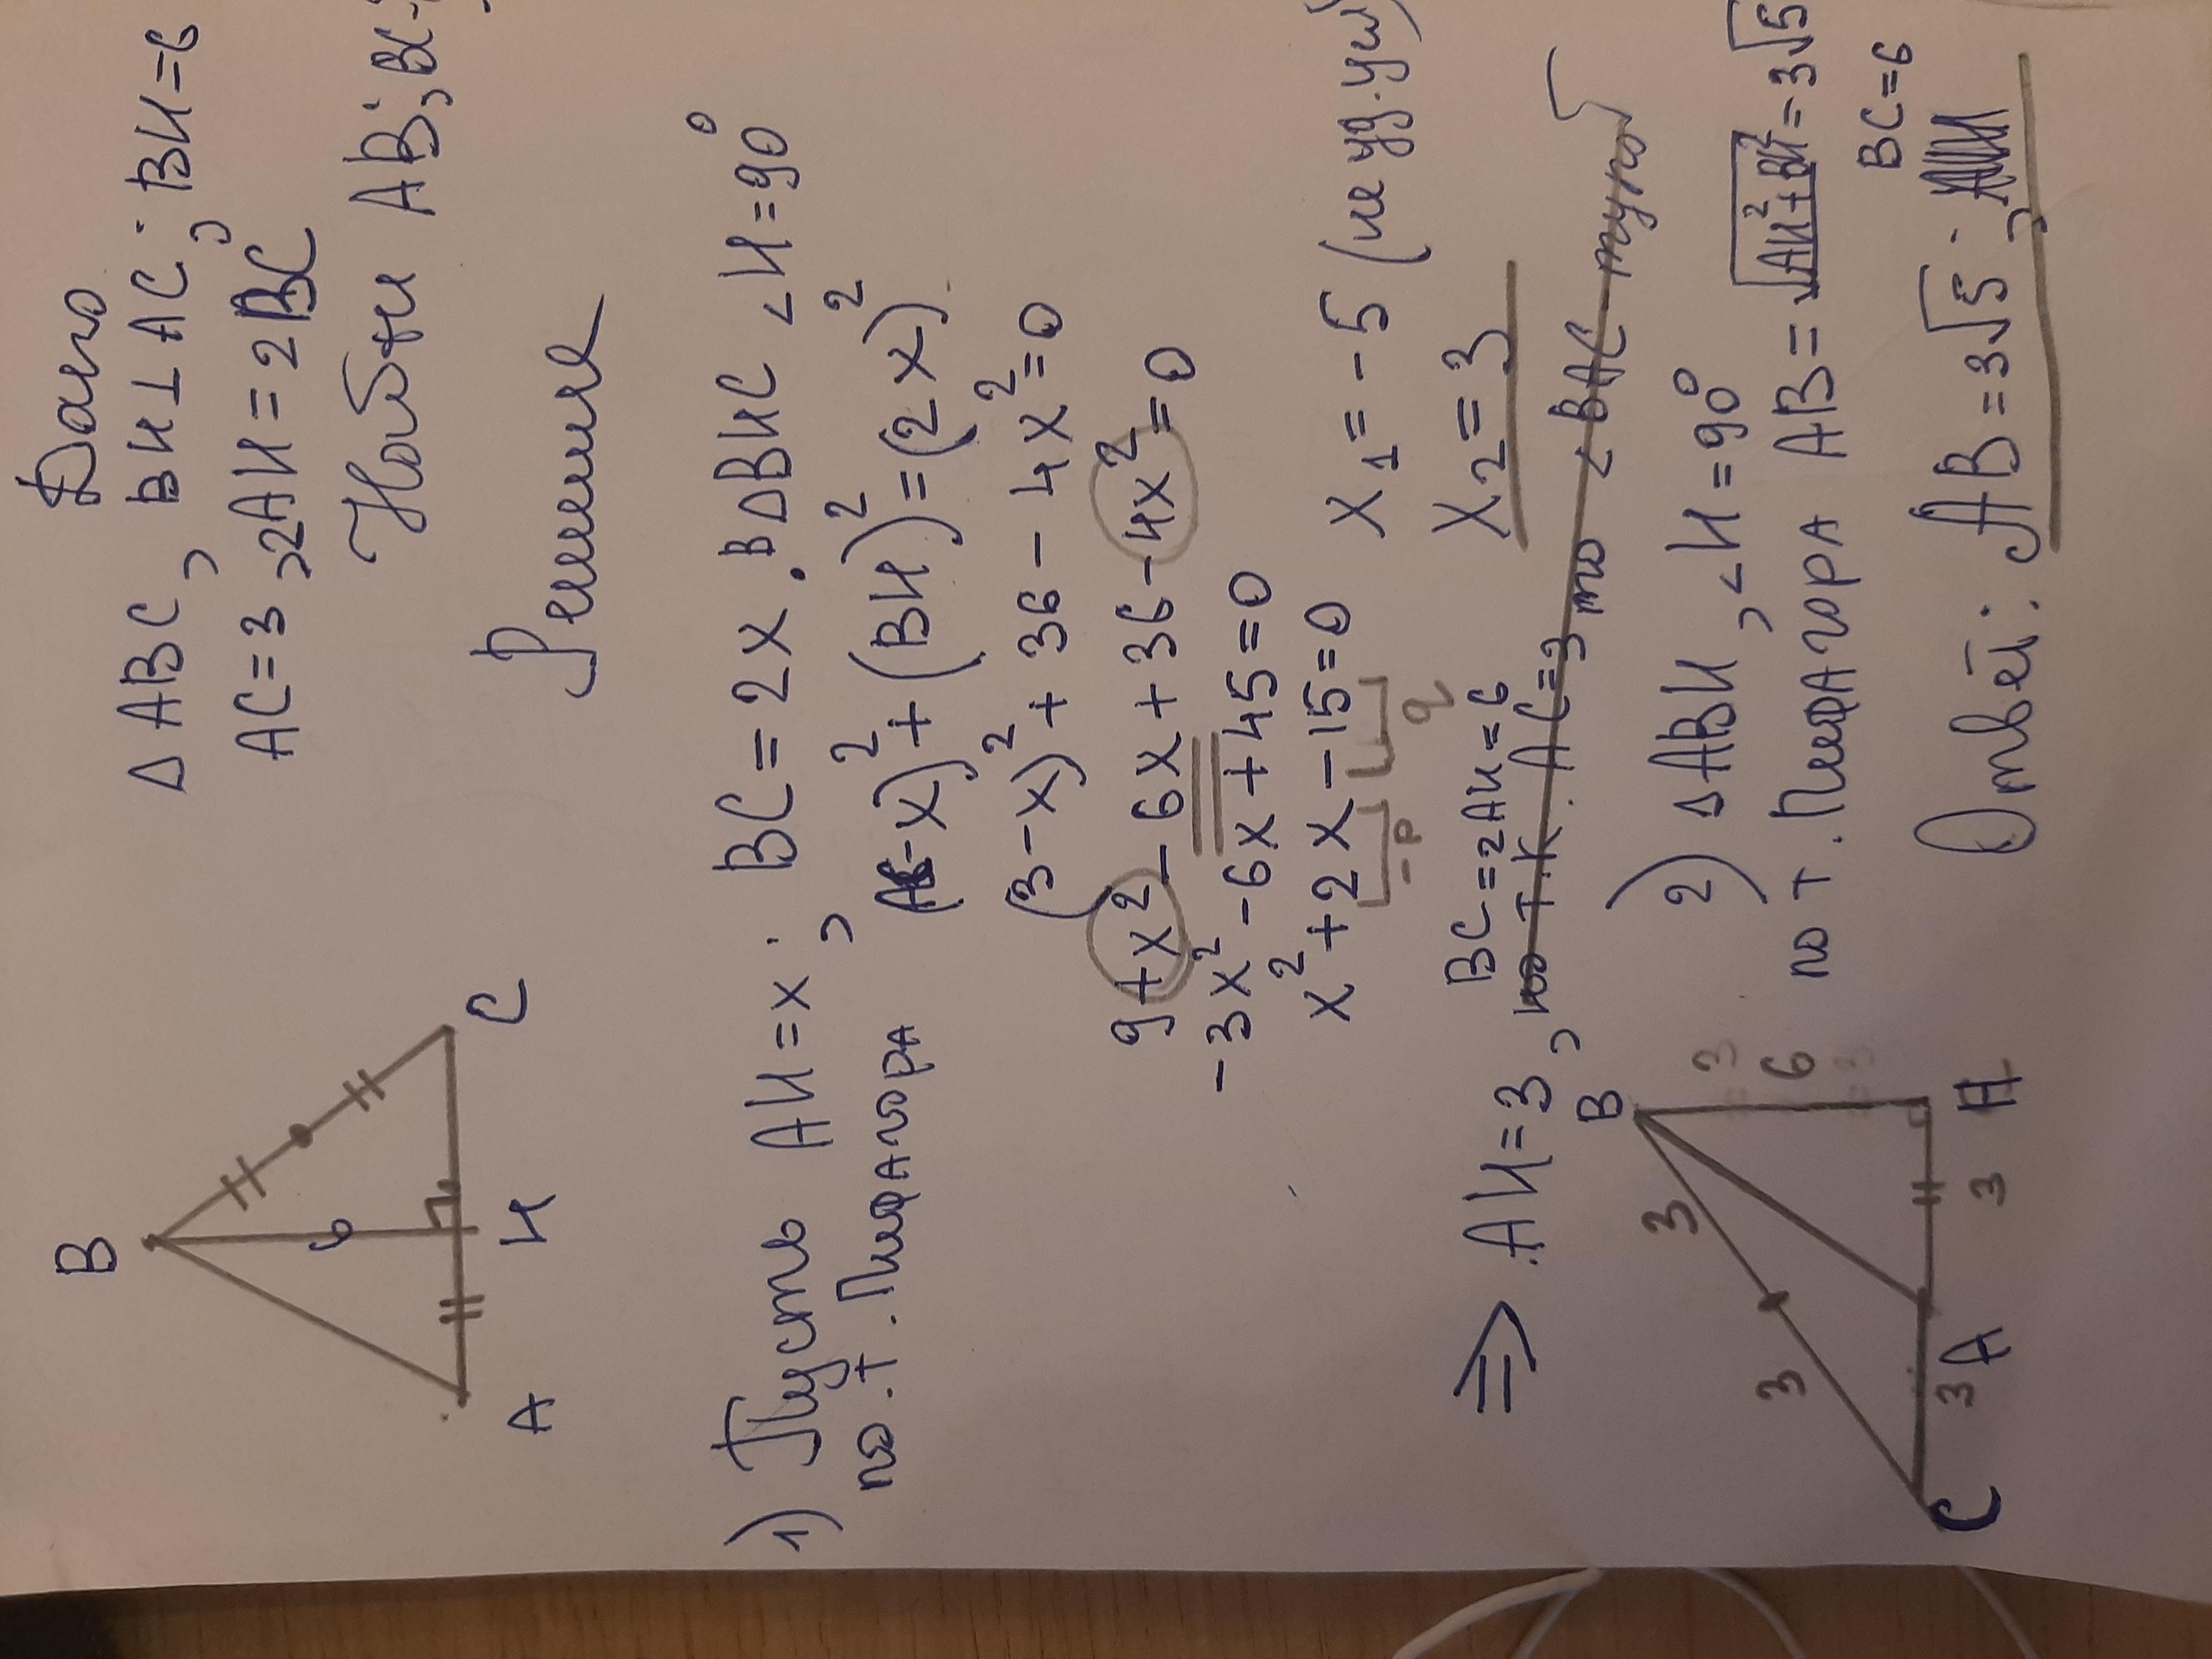 Дано
△ABC, BH⊥AC; BH=6
AC=3, 2AH=2BC
Найти AB; BC-
Решение
B
6
A H C
1) Пусть AH=x; BC=2x. В △BHC ∠H=90°
по т. Пифагора (-x)²+(BH)²=(2x)²
(3-x)²+36-4x²=0
9+x²-6x+36-4x²=0
-3x²-6x+45=0
x²+2x-15=0
-p q
x₁=-5 (не уд. усл)
x₂=3
⇒ AH=3, BC=2AH=6
но т.к. AC=3 то ∠BAC тупой
B
3 6
3
C 3 A 3 H
2) △ABH, ∠H=90°
по т. Пифагора AB=√AH²+BH²=3√5
Ответ: AB=3√5; BC=6